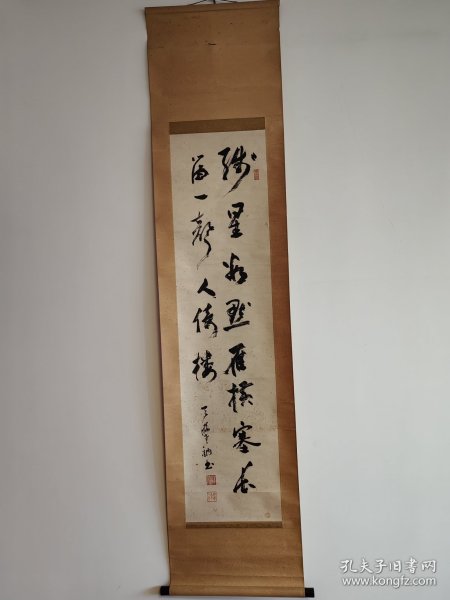 残星數點雁横塞長
笛一聲人倚樓
書
孔夫子旧书网
www.kongfz.com